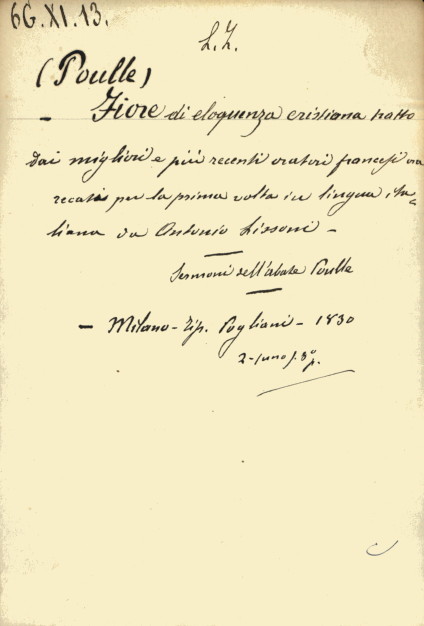 66.XI.13.
L.Z.
(Poulle)
- Fiore di eloquenza cristiana tratto
dai migliori e più recenti oratori francesi ora
recati per la prima volta in lingua ita=
liana da Antonio Lissoni -
Sermoni dell'abate Poulle
- Milano - Tip. Pogliani - 1830
2-